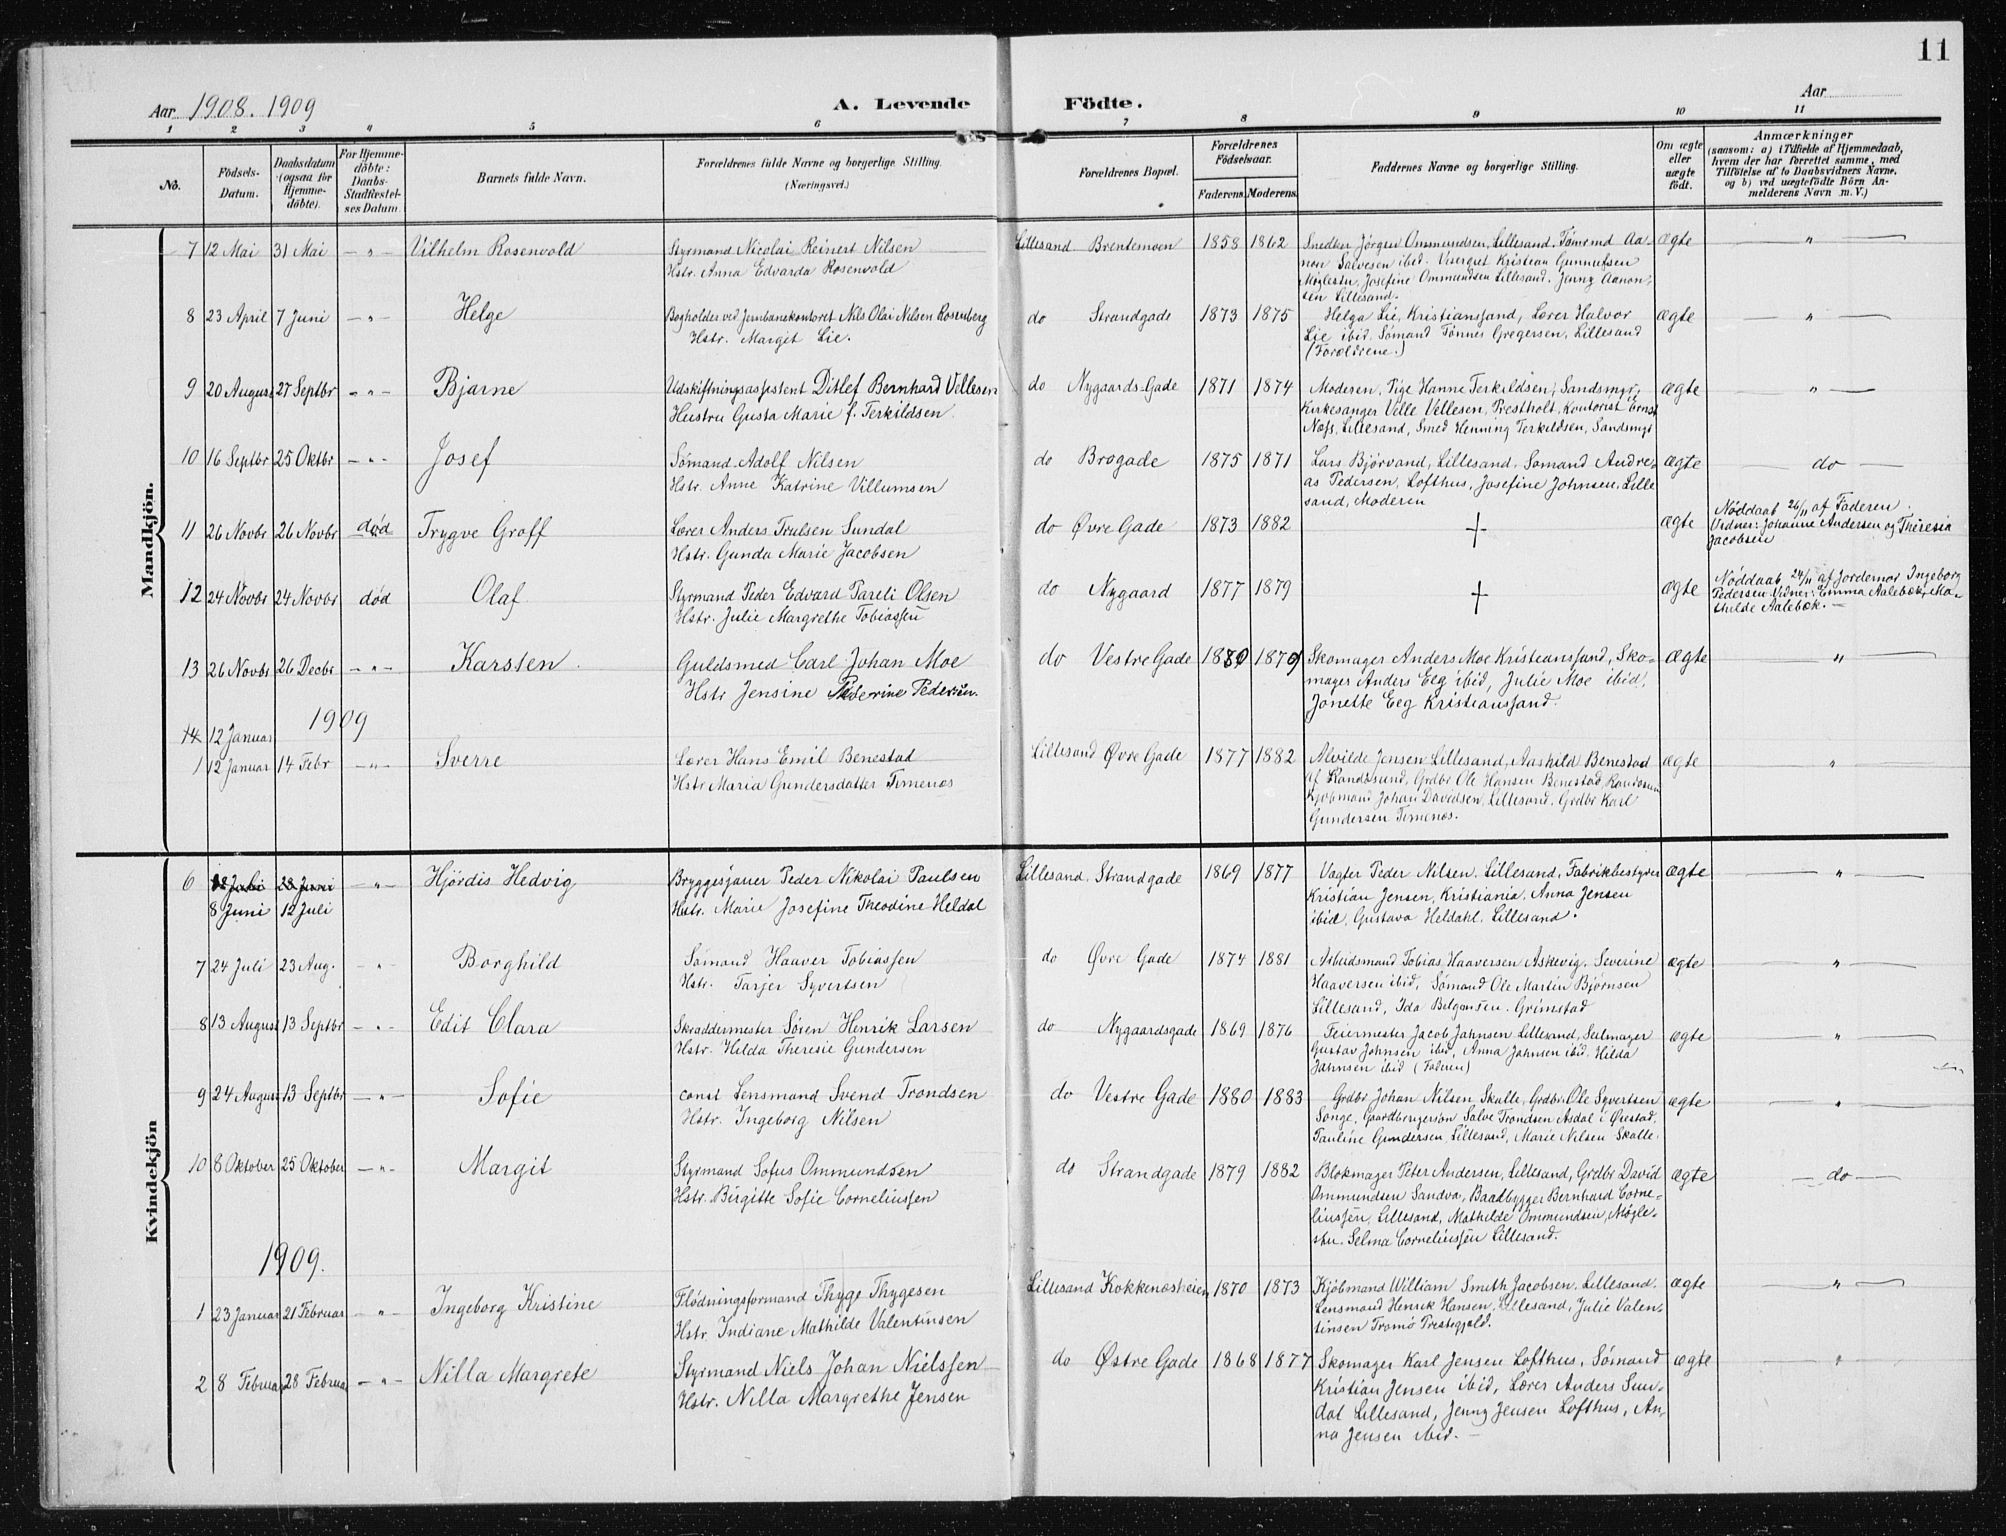 11
Aar 1908. 1909
A. Levende Födte.
Aar
1 2 3 4 5 6 7 8 9 10 11
No.
Födsels-Datum.
Daabsdatum (ogsaa for Hjemme-döbte).
For Hjemme-döbte: Daabs-Stadfæstel-ses Datum.
Barnets fulde Navn.
Forældrenes fulde Navne og borgerlige Stilling. (Næringsvei.)
Forældrenes Bopæl.
Forældrenes Födselsaar.
Faderens. Moderens.
Faddernes Navne og borgerlige Stilling.
Om ægte eller uægte födt.
Anmærkninger (saasom: a) i Tilfælde af Hjemmedaab, hvem der har forrettet samme, med Tilföielse af to Daabsvidners Navne, og b) ved uægtefödte Börn An-melderens Navn m. V.)
Mandkjön.
7 12 Mai 31 Mai — " — Vilhelm Rosenvold Styrmand Nicolai Reinert Nilsen Lillesand Brentemoen 1858 1862 Snedker Jörgen Ommundsen, Lillesand. Tömrmd Aa- ægte — " —
Hstr. Anna Edvarda Rosenvold non Salvesen ibid. Visergut Kristian Gunnufsen
Möglestu, Josefine Ommundsen Lillesand. Jenny Aanon-
sen Lillesand.
8 23 April 7 Juni — " — Helge Bogholder ved Jernbanekontoret Nils Olai Nilsen Rosenberg do Strandgade 1873 1875 Helga Lie, Kristianssand, Lærer Halvor ægte — " —
Hstr. Margit Lie. Lie ibid. Sömand Tönnes Gregersen, Lillesand
(Forældrene.)
9 20 August 27 Septbr — " — Bjarne Udskiftningsassistent Ditlef Bernhard Vellesen do Nygaards Gade 1871 1874 Moderen, Pige Hanne Terkildsen, Sandsmyr, ægte — " —
Hustru Gusta Marie f. Terkildsen. Kirkesanger Ville Vellesen, Prestholt, Kontorist Ernst
Næss, Lillesand, Smed Henning Terkildsen, Sandsmyr
10 16 Septbr 25 Oktbr — " — Josef Sömand Adolf Nilsen do Brogade 1875 1871 Lars Björvand, Lillesand. Sömand Andre- ægte — do —
Hstr. Anne Katrine Villumsen as Pedersen, Lofthus, Josefine Johnsen, Lille
sand, Moderen
11 26 Novbr 26 Novbr død Trygve Groff Lærer Anders Trulsen Sundal do Øvre Gade 1873 1882 † ægte Nøddaab 26/11 af Faderen.
Hstr. Gunda Marie Jacobsen Vidner: Johanne Andersen og Theresia
Jacobsen
12 24 Novbr 24 Novbr død Olaf Styrmand Peder Edvard Pareli Olsen do Nygaard 1877 1879 † ægte Nøddaab 24/11 af Jordemor Ingeborg
Hstr. Julie Margrethe Tobiassen Pedersen. Vidner: Emma Aalebæk, Ma-
thilde Aalebæk. —
13 26 Novbr 26 Decbr — " — Karsten. Guldsmed Carl Johan Moe do Vestre Gade 1880 1879 Skomager Anders Moe Kristianssand, Sko- ægte — " —
Hstr Jensine Pederine Pedersen. mager Anders Eeg ibid, Julie Moe ibid.
Jonette Eeg Kristianssand.
1909
14 12 Januar
1 12 Januar 14 Febr — " — Sverre Lærer Hans Emil Benestad Lillesand Øvre Gade 1877 1882 Alvilde Jensen Lillesand, Aashild Benestad ægte — " —
Hstr Maria Gundersdatter Timenes af Randesund, Grdbr Ole Hansen Benestad, Randesund
Kjøbmand Johan Davidsen, Lillesand. Grdbr Karl
Gundersen Timenes.
Kvindekjön
6 18 Juli 28 Juni — " — Hjördis Hedvig Bryggesjauer Peder Nikolai Paulsen Lillesand. Strandgade 1869 1877 Vagter Peder Nilsen. Lillesand, Fabrikbestyrer ægte — " —
8 Juni 12 Juli Hstr. Marie Josefine Theodine Heldal Kristian Jensen, Kristiania. Anna Jensen
ibid, Gustava Heldahl, Lillesand.
7 24 Juli 23 Aug. " Borghild Sömand Haaver Tobiassen do Øvre Gade 1874 1881 Arbeidsmand Tobias Haaversen Askevig, Severine ægte — " —
Hstr. Tarjer Syvertsen Haaversen ibid, Sömand Ole Martin Björnsen
Lillesand, Ida Belgonsen. Grimstad
8 13 August 13 Septbr — " — Edit Clara Skræddermester Sören Henrik Larsen do Nygaardsgade 1869 1876 Feiermester Jacob Jahnsen Lillesand, Seilmager ægte — " —
Hstr. Hilda Theresie Gundersen Gustav Johnsen ibid, Anna Jahnsen ibid. Hilda
Jahnsen ibid (Faderen)
9 24 August 13 Septbr — " — Sofie const Lensmand Svend Trondsen do Vestre Gade 1880 1883 Grdbr Johan Nilsen Skalle, Grdbr. Ole Syvertsen ægte — " —
Hstr. Ingeborg Nilsen Songe, Gaardbrugersön Salve Trondsen Asdal i Øiestad,
Pauline Gundersen, Lillesand, Marie Nilsen Skalle.
10 8 Oktober 25 Oktober — " — Margit Styrmand Sofus Ommundsen do Strandgade 1879 1882 Blokmager Peter Andersen, Lillesand, Grdbr David ægte — do —
Hstr. Birgitte Sofie Corneliussen Ommundsen Sandva, Baadbygger Bernhard Corne-
liussen, Lillesand, Mathilde Ommundsen, Mögle-
stu. Selma Corneliussen Lillesand.
1909.
1 23 Januar 21 Februar — " — Ingeborg Kristine Flødningsformand Thyge Thygesen Lillesand Kokkenesheien 1870 1873 Kjöbmand William Smith Jacobsen. Lillesand. ægte — " —
Hstr. Indiane Mathilde Valentinsen Lensmand Henrik Hansen, Lillesand, Julie Valen-
tinsen Tromö Prestegjeld.
2 8 Februar 28 Februar — " — Nilla Margrete Styrmand Niels Johan Nielssen do Østre Gade 1868 1877 Skomager Karl Jensen Lofthus, Sömand ægte — " —
Hstr. Nilla Margrethe Jensen Kristian Jensen ibid, Lærer Anders Sun-
dal Lillesand, Jenny Jensen Lofthus, An-
na Jensen ibid. —